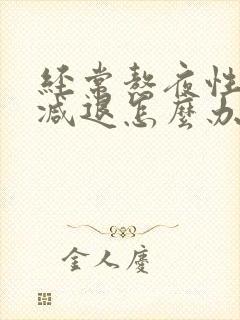 經常熬夜性
減退怎麼办
金人慶